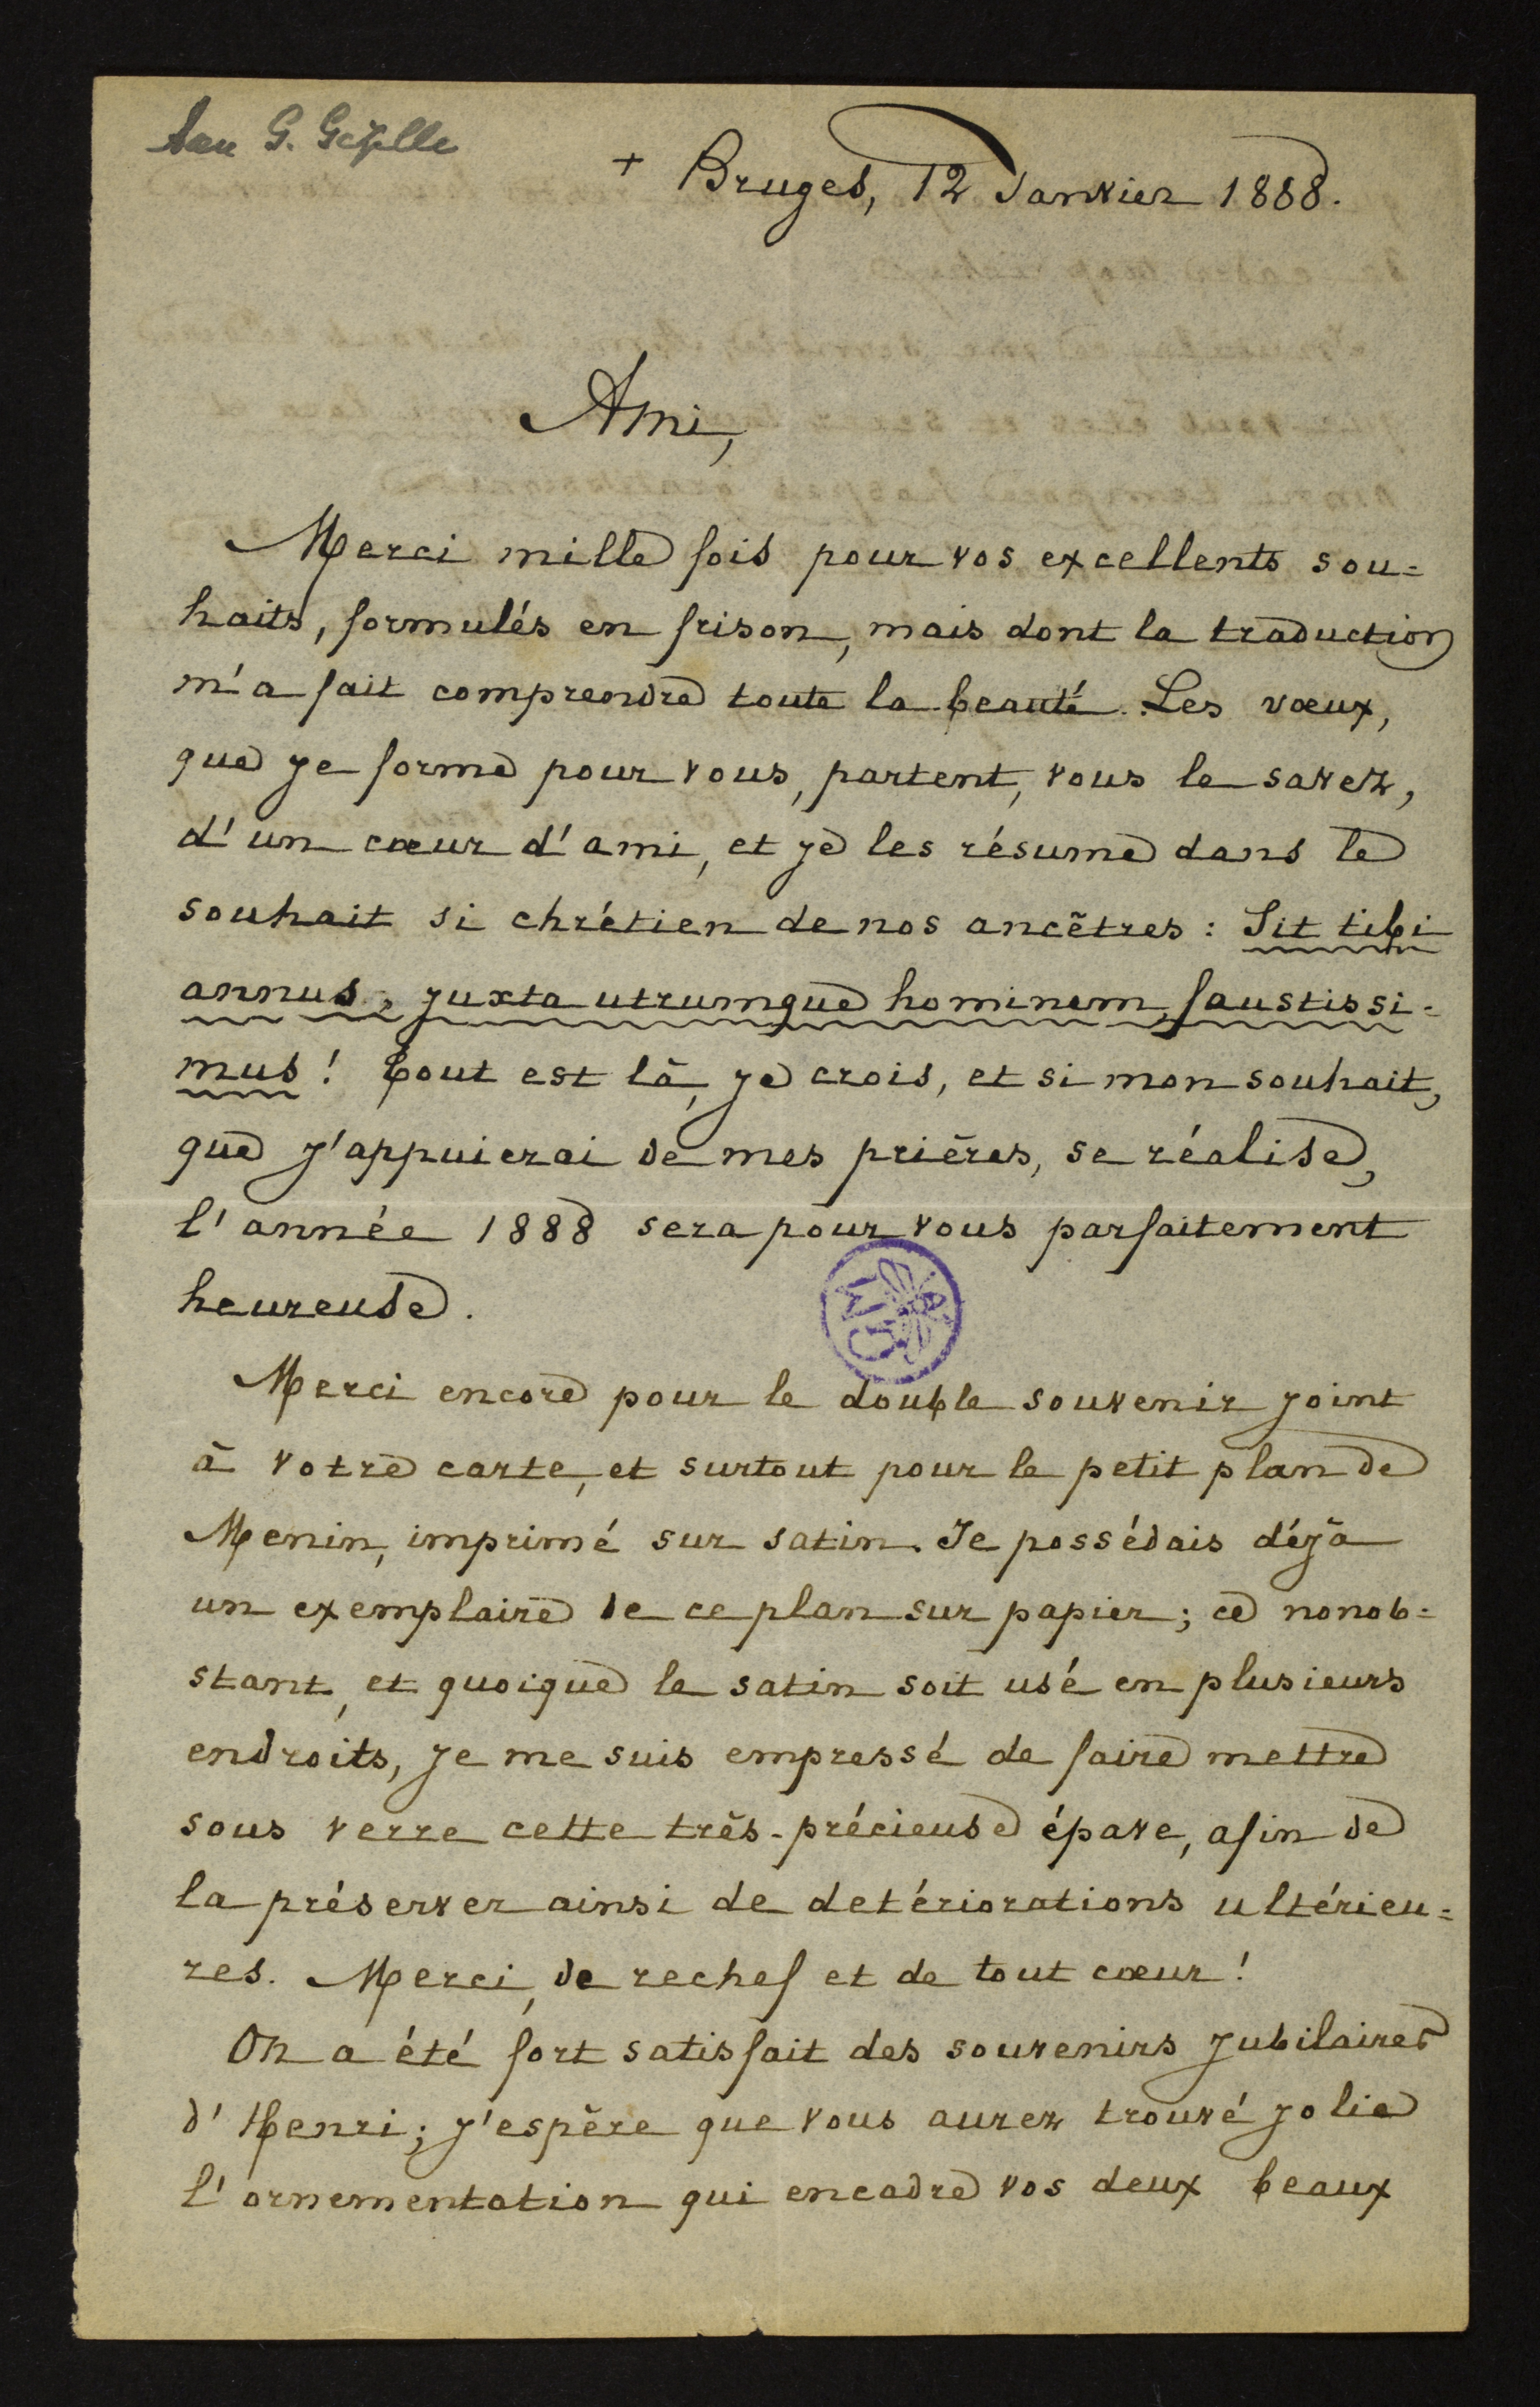 Aan G. Gezelle
+ Bruges, 12 Janvier 1888.
Ami,
Merci mille fois pour vos excellents sou=
haits, formulés en frison, mais dont la traduction
m'a fait comprendre toute la beauté. Les vœux,
que je forme pour vous, partent, vous le savez,
d'un cœur d'ami, et je les résume dans le
souhait si chrétien de nos ancêtres : Sit tibi
annus, juxta utrumque hominem, faustissi=
mus ! Tout est là, je crois, et si mon souhait,
que j'appuierai de mes prières, se réalise,
l'année 1888 sera pour vous parfaitement
heureuse.
Merci encore pour le double souvenir joint
à votre carte, et surtout pour le petit plan de
Menin, imprimé sur satin. Je possédais déjà
un exemplaire de ce plan sur papier ; ce nonob=
stant, et quoique le satin soit usé en plusieurs
endroits, je me suis empressé de faire mettre
sous verre cette très-précieuse épave, afin de
la préserver ainsi de detériorations ultérieu=
res. Merci, de rechef et de tout cœur !
On a été fort satisfait des souvenirs jubilaires
d'Henri ; j'espère que vous aurez trouvé jolie
l'ornementation qui encadre vos deux beaux